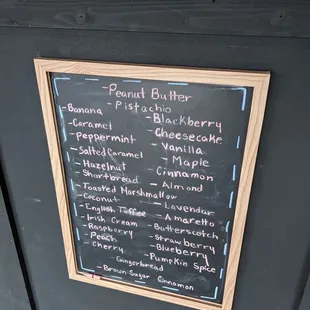 - Peanut Butter
- Pistachio
- Banana
- Caramel
- Peppermint
- Salted Caramel
- Hazelnut
- Shortbread
- Toasted Marshmallow
- Coconut
- English Toffee
- Irish Cream
- Raspberry
- Peach
- Cherry
- Blackberry
- Cheesecake
- Vanilla
- Maple
- Cinnamon
- Almond
- Lavendar
- Amaretto
- Butterscotch
- Strawberry
- Blueberry
- Pumpkin Spice
- Gingerbread
- Brown Sugar Cinnamon